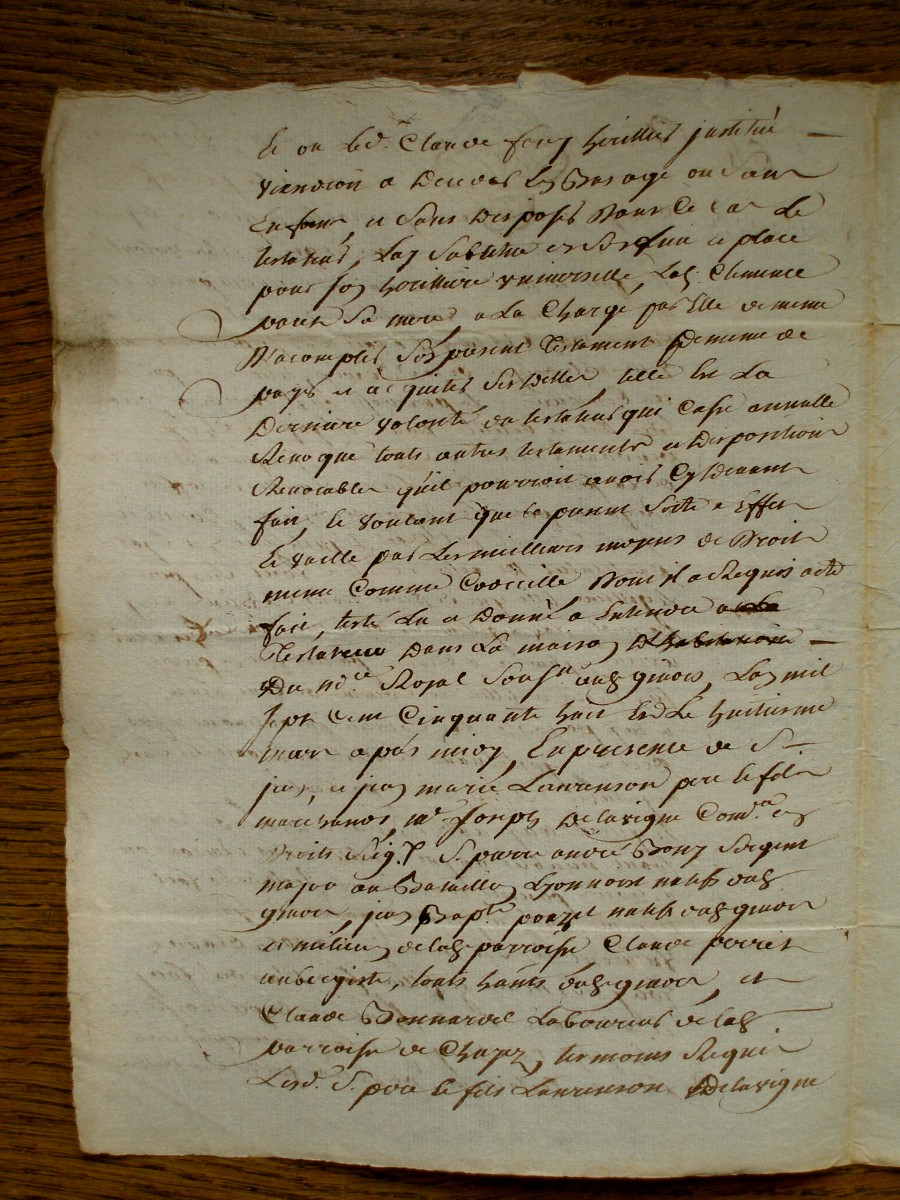 Et ou led. Claude heritier institué
viendroit a deceder en bas age ou sans
Enfans, et sans disposer dans ce cas le
testateur, luy substitue et a place
pour son heritiere universelle, lad. Clemence
sa mere, a la Charge par Elle de meme
d'acomplir son present testament de meme de
payer et acquiter ses dettes, telle est la
Derniere volonté du testateur qui casse annulle
Revoque touts autres testaments et dispositions
Revocables qu'il pourroit avoir cy devant
fait, et voulant que le present sorte a Effet
Et vaille par les meilleurs moyens de droit
meme comme Codicille dont il a Requis acte
fait, leu et donné a Entendre au
testateur dans la maison d'habitation
du no.re Royal sous.né lan mil
sept cent cinquante huit et le huitieme
mars apres midy, En presence de S.
jean, et jean marie Laurenson pere et fils
marchands, m.e Joseph Delavigne
droits S. pierre andré Sergent
major au Bataillon Lyonnois natif
jean Bapt.e natif
et milicien de lad. parroisse Claude perret
aubergiste, touts et
Claude Bonnardel Laboureur de lad.
parroisse de temoins Requis
Lesd. S. pere et fils Laurenson Delavigne